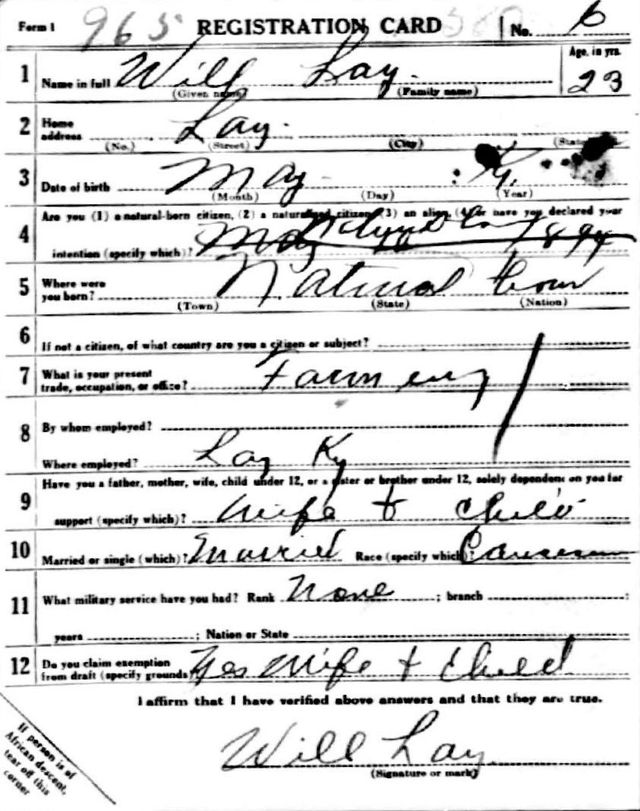 Form 1 965 REGISTRATION CARD No. 6
1 Name in full Will Lay. Age, in yrs.
(Given name) (Family name) 23
2 Home address Lay.
(No.) (Street) (City) (State)
3 Date of birth May Ky.
(Month) (Day) (Year)
4 Are you (1) a natural-born citizen, (2) a naturalized citizen, (3) an alien, (4) or have you declared your
intention (specify which)? May 1894
5 Where were you born? Natural born
(Town) (State) (Nation)
6 If not a citizen, of what country are you a citizen or subject?
7 What is your present trade, occupation, or office? Farming
8 By whom employed?
Where employed? Lay Ky
9 Have you a father, mother, wife, child under 12, or a sister or brother under 12, solely dependent on you for
support (specify which)? Wife & child
10 Married or single (which)? Married Race (specify which)? Caucasian
11 What military service have you had? Rank None ; branch ;
years ; Nation or State
12 Do you claim exemption from draft (specify grounds)? Yes Wife & Child
I affirm that I have verified above answers and that they are true.
Will Lay
(Signature or mark)
If person is of
African descent,
tear off this
corner